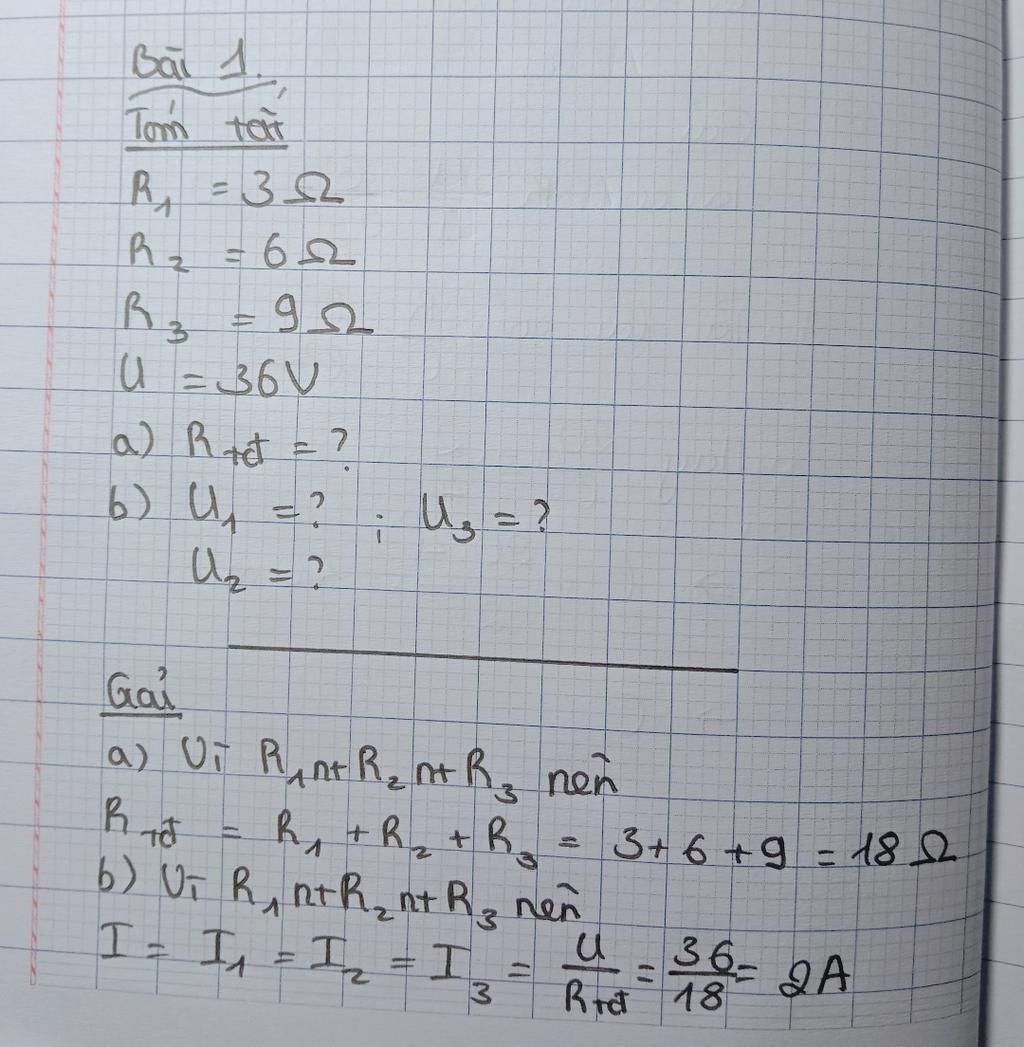 Bài 1.
Tóm tắt
R₁ = 3 Ω
R₂ = 6 Ω
R₃ = 9 Ω
U = 36V
a) Rtđ = ?
b) U₁ = ? ; U₃ = ?
U₂ = ?
Gải
a) Vì R₁ nt R₂ nt R₃ nên
Rtđ = R₁ + R₂ + R₃ = 3 + 6 + 9 = 18 Ω
b) Vì R₁ nt R₂ nt R₃ nên
I = I₁ = I₂ = I₃ = U/Rtđ = 36/18 = 2A